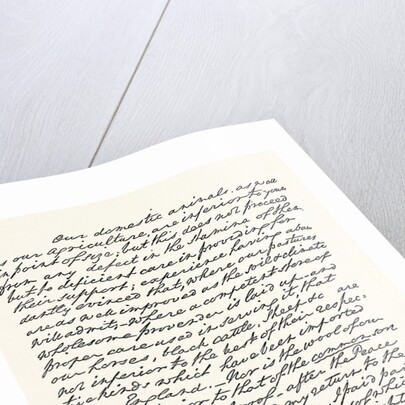 Our domestic animals, as well
as our agriculture, are inferior to yours
in point of size; but this does not proceed
from any defect in the stamina of them,
but to deficient care in providing for
their support; experience having abun
dantly evinced that, where our pastures
are as well improved as the soil & climate
will admit; where a competent store of
wholesome provender is laid up and
proper care used in serving it that
our horses, black cattle, sheep &c are
not inferior to the best of their respec,
tive kinds which have been imported
England_ Nor is the wool of our
rior to that of the common sort
after the Peace
my return to the
paid